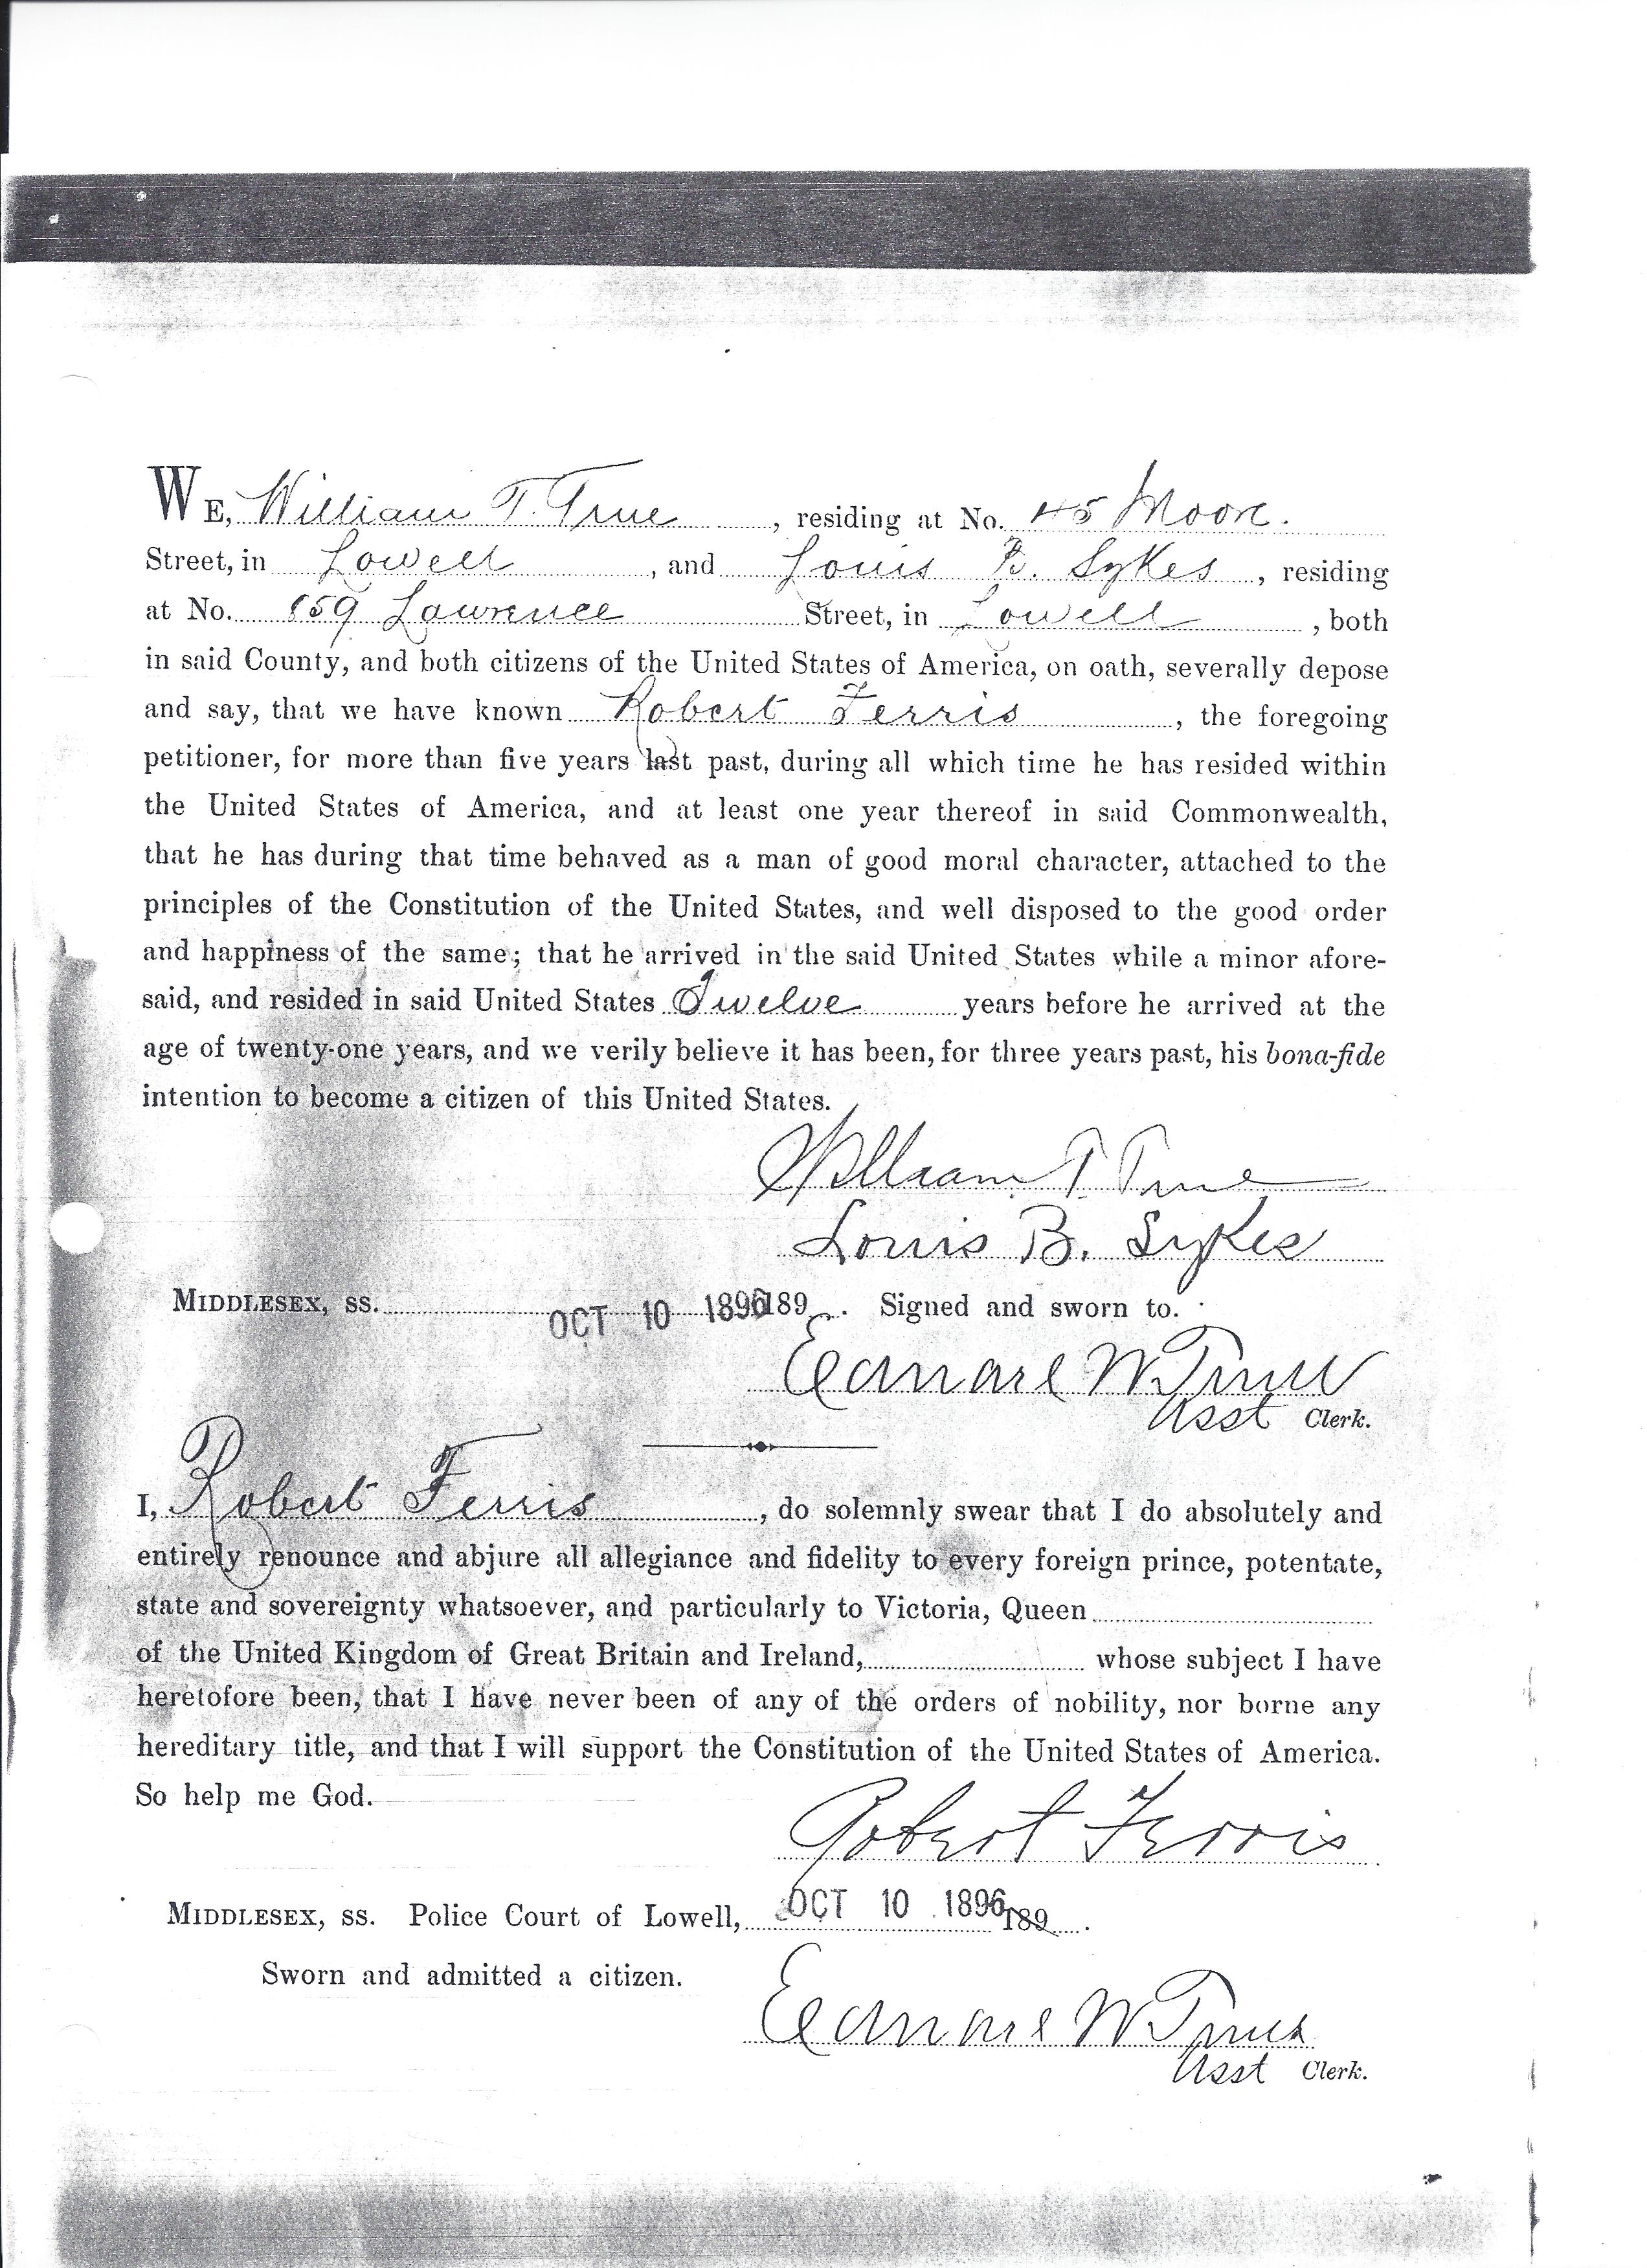 WE, William T. True, residing at No. 45 Moore.
Street, in Lowell, and Louis B. Sykes, residing
at No. 859 Lawrence Street, in Lowell, both
in said County, and both citizens of the United States of America, on oath, severally depose
and say, that we have known Robert Ferris, the foregoing
petitioner, for more than five years last past, during all which time he has resided within
the United States of America, and at least one year thereof in said Commonwealth,
that he has during that time behaved as a man of good moral character, attached to the
principles of the Constitution of the United States, and well disposed to the good order
and happiness of the same; that he arrived in the said United States while a minor afore-
said, and resided in said United States Twelve years before he arrived at the
age of twenty-one years, and we verily believe it has been, for three years past, his bona-fide
intention to become a citizen of this United States.
William T. True
Louis B. Sykes
MIDDLESEX, SS. OCT 10 1896 189 . Signed and sworn to.
Edward W
Asst Clerk.
I, Robert Ferris, do solemnly swear that I do absolutely and
entirely renounce and abjure all allegiance and fidelity to every foreign prince, potentate,
state and sovereignty whatsoever, and particularly to Victoria, Queen
of the United Kingdom of Great Britain and Ireland, whose subject I have
heretofore been, that I have never been of any of the orders of nobility, nor borne any
hereditary title, and that I will support the Constitution of the United States of America.
So help me God.
Robert Ferris
MIDDLESEX, SS. Police Court of Lowell, OCT 10 1896 189 .
Sworn and admitted a citizen.
Edward W
Asst Clerk.